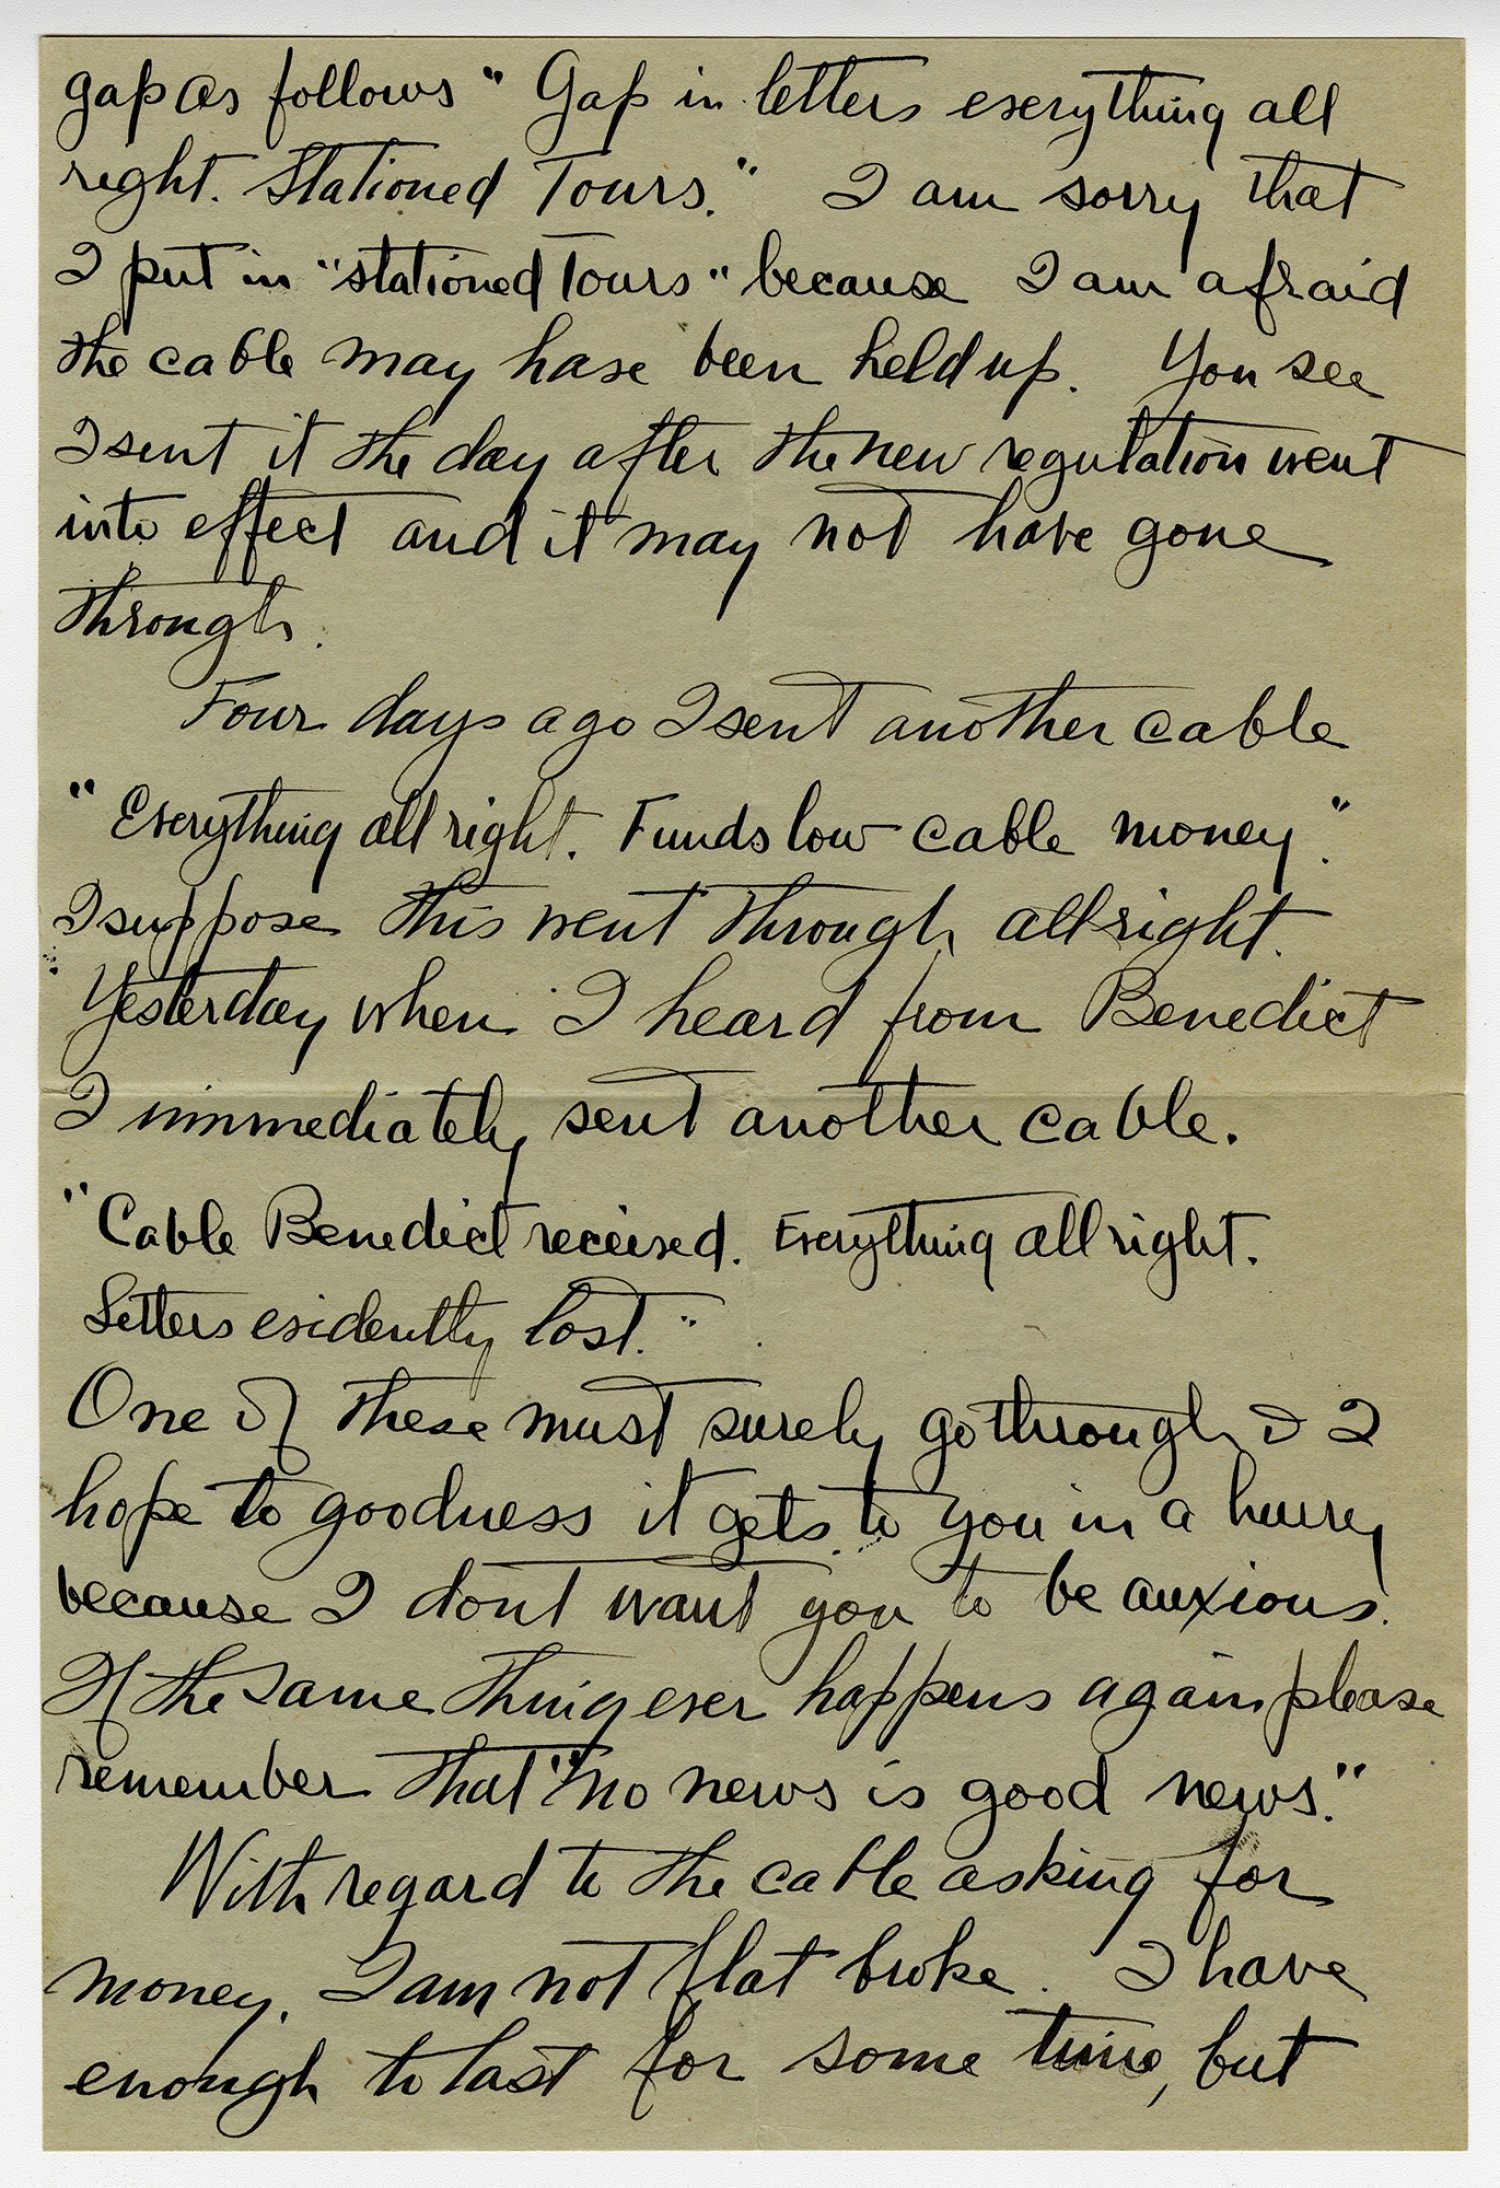 gap as follows " Gap in letters everything all
right. Stationed Tours." I am sorry that
I put in "stationed Tours" because I am afraid
the cable may have been held up. You see
I sent it the day after the new regulation went
into effect and it may not have gone
through.
Four days ago I sent another cable
"Everything all right. Funds low cable money."
I suppose this went through all right.
Yesterday when I heard from Benedict
I immediately sent another cable.
"Cable Benedict received. Everything all right.
Letters evidently lost."
One of these must surely go through & I
hope to goodness it gets to you in a hurry
because I dont want you to be anxious.
If the same thing ever happens again please
remember that "no news is good news."
With regard to the cable asking for
money. I am not flat broke. I have
enough to last for some time, but